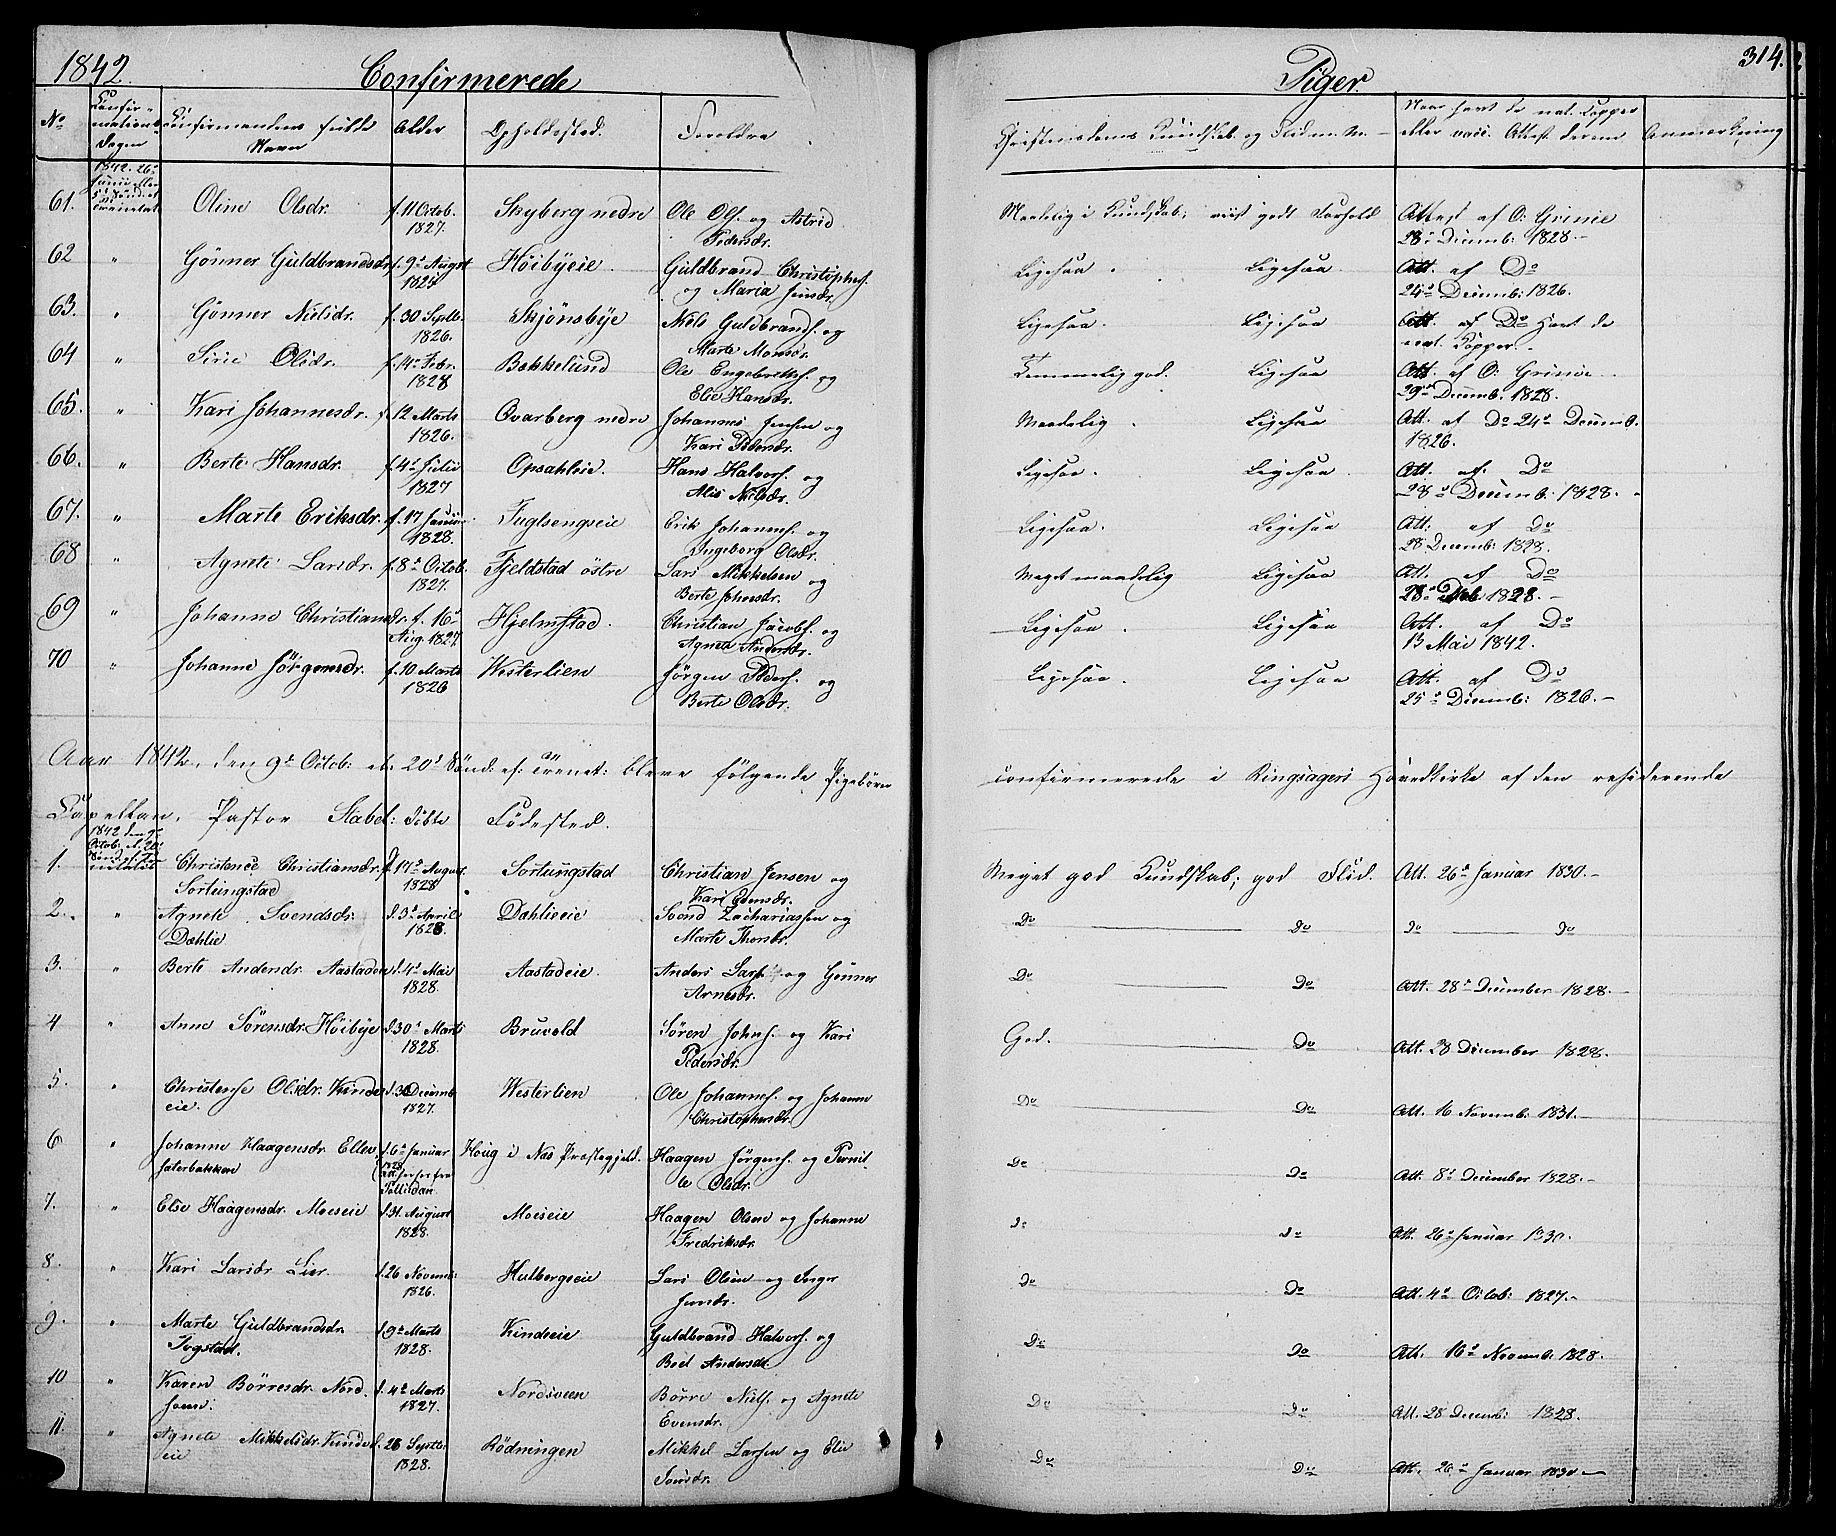 1842.
Confirmerede
Piger.
314.
No
Confir-
mations-
Dagen
Confirmandens fulde
Navn
Alder
Opholdssted.
Forældre
Christendoms Kundskab og Flid m. v.
Naar havt de nat. Kopper
eller vacc. Attest derom
Anmærkning
1842. 26de
61. Oline Olsdr. f. 11 Octob. 1827. Skyberg nedre Ole Ols. og Astrid Pedersdr. Maadelig i Kundskab; viist godt Forhold Attest af O: Grinie 28de Decemb: 1828.-
62 " Gønner Guldbrandsdr. f. 9de Augst 1825 Høibyeie. Guldbrand Christophs. og Maria Jensdr. Ligesaa. Ligesaa. Att. af Do 24de Decemb: 1826.
63. " Gønner Nielsdr. f. 30 Septb. 1826. Skjønsbye Niels Guldbrands. og Marte Monsdr. Ligesaa. Ligesaa. Att. af Do Havt de nat. Kopper.-
64 " Sirie Olsdr. f. 14de Febr. 1828 Bækkelund Ole Engebrets. og Elie Hansdr. Temmelig god. Ligesaa Att. af O: Grinie. 29de Decemb. 1828.
65. " Kari Johannesdr. f. 12 Marts 1826. Qvarberg nedre Johannes Jensen og Kari Pedersdr. Maadelig. Ligesaa Att. af Do 24de Decemb. 1826.
66. " Berte Hansdr. f. 4de Julii 1827 Opsahleie. Hans Halvors. og Alis Nilsdr. Ligesaa. Ligesaa. Att. af. Do 28de Decemb: 1828.-
67. " Marte Eriksdr. f. 17 Januar 1828. Fuglsengseie Erik Johannes. og Ingeborg Olsdr. Ligesaa. Ligesaa Att. af Do 28 Decemb: 1828.
68 " Agnete Larsdr. f. 8de Octob. 1827. Fjeldstad østre Lars Mikkelsen og Berte Johnsdr. Meget maadelig Ligesaa Att. af Do 28de Deb. 1828.-
69 " Johanne Christiansdr. f. 16de Aug. 1827. Hjelmstad. Christian Jacobs. og Agnea Andersdr. Ligesaa. Ligesaa Att. af Do 13 Mai 1842.
70 " Johanne Jørgensdr. f. 10 Marts 1826 Westerlien Jørgen Peders. og Berte Olsdr. Ligesaa. Ligesaa Att. af Do 25de Decemb: 1826.-
Aar 1842, den 9de Octob: et. 20de Sønd: ef: Trenet: bleve følgende Pigebørn confirmerede i Ringsagers Hovedkirke af den residerende
Capellan, Pastor Stabel: Døbte Fødested.
1842 den 9de
1. Christence Christiansdr. Sortungstad d. 17de August 1828 Sortungstad Christian Jensen og Kari Evensdr. Meget god Kundskab; god Flid. Att. 26de Januar 1830.-
2. " Agnete Svendsdr. Dæhlie d. 3de April 1828. Dæhlieeie Svend Zachariassen og Marte Thorsdr. Do Do Do Do
3. " Berte Andersdr. Aastadeie d. 4de Mai 1828. Aastadeie. Anders Lars. og Gønner Arnesdr. Do Do Att. 28de December 1828.-
4 " Anne Sørensdr. Høibye d. 30te Marts 1828. Bruvold Søren Johns. og Kari Pedersdr. God. Do Att. 28 December 1828.
5. " Christense Olsdr. Kindseie. d. 30 Decemb 1827. Westerlien Ole Johannes. og Johanne Christophersdr. Do Do Att. 16 Novemb: 1831.-
6 " Johanne Haagensdr. Ellevsæterbakken d. 6te Januar 1828 Houg i Næs Præstegjeld. Haagen Jørgens. og Pernille Olsdr. Do Do Att. 8de December 1828.-
7. " Elie Haagensdr. Moeseie d. 31. August 1828. Moeseie Haagen Olsen og Johanne Fredriksdr. Do Do Att. 26de Januar 1830.
8. " Kari Larsdr Lier. d. 26 Novemb: 1826. Hulbergseie Lars Olsen og Inger Jensdr. Do Do Att. 4de Octob: 1827.-
9. " Marte Guldbrandsdr. Togstad. d. 9de Marts 1828. Kindseie Guldbrand Halvors. og Beel Andersdr Do Do Att. 16de Novemb: 1828.
10 " Karen Børresdr. d. 4de Marts 1827. Nordsveen Børre Niels. og Agnete Evensdr. Do Do Att. 28 Decemb: 1828.
11. " Agnete Mikkelsdr. Kindseie d. 28 Septbr 1828. Rødningen Mikkel Larsen og Elie Do Do Att. 26de Januar 1830.-